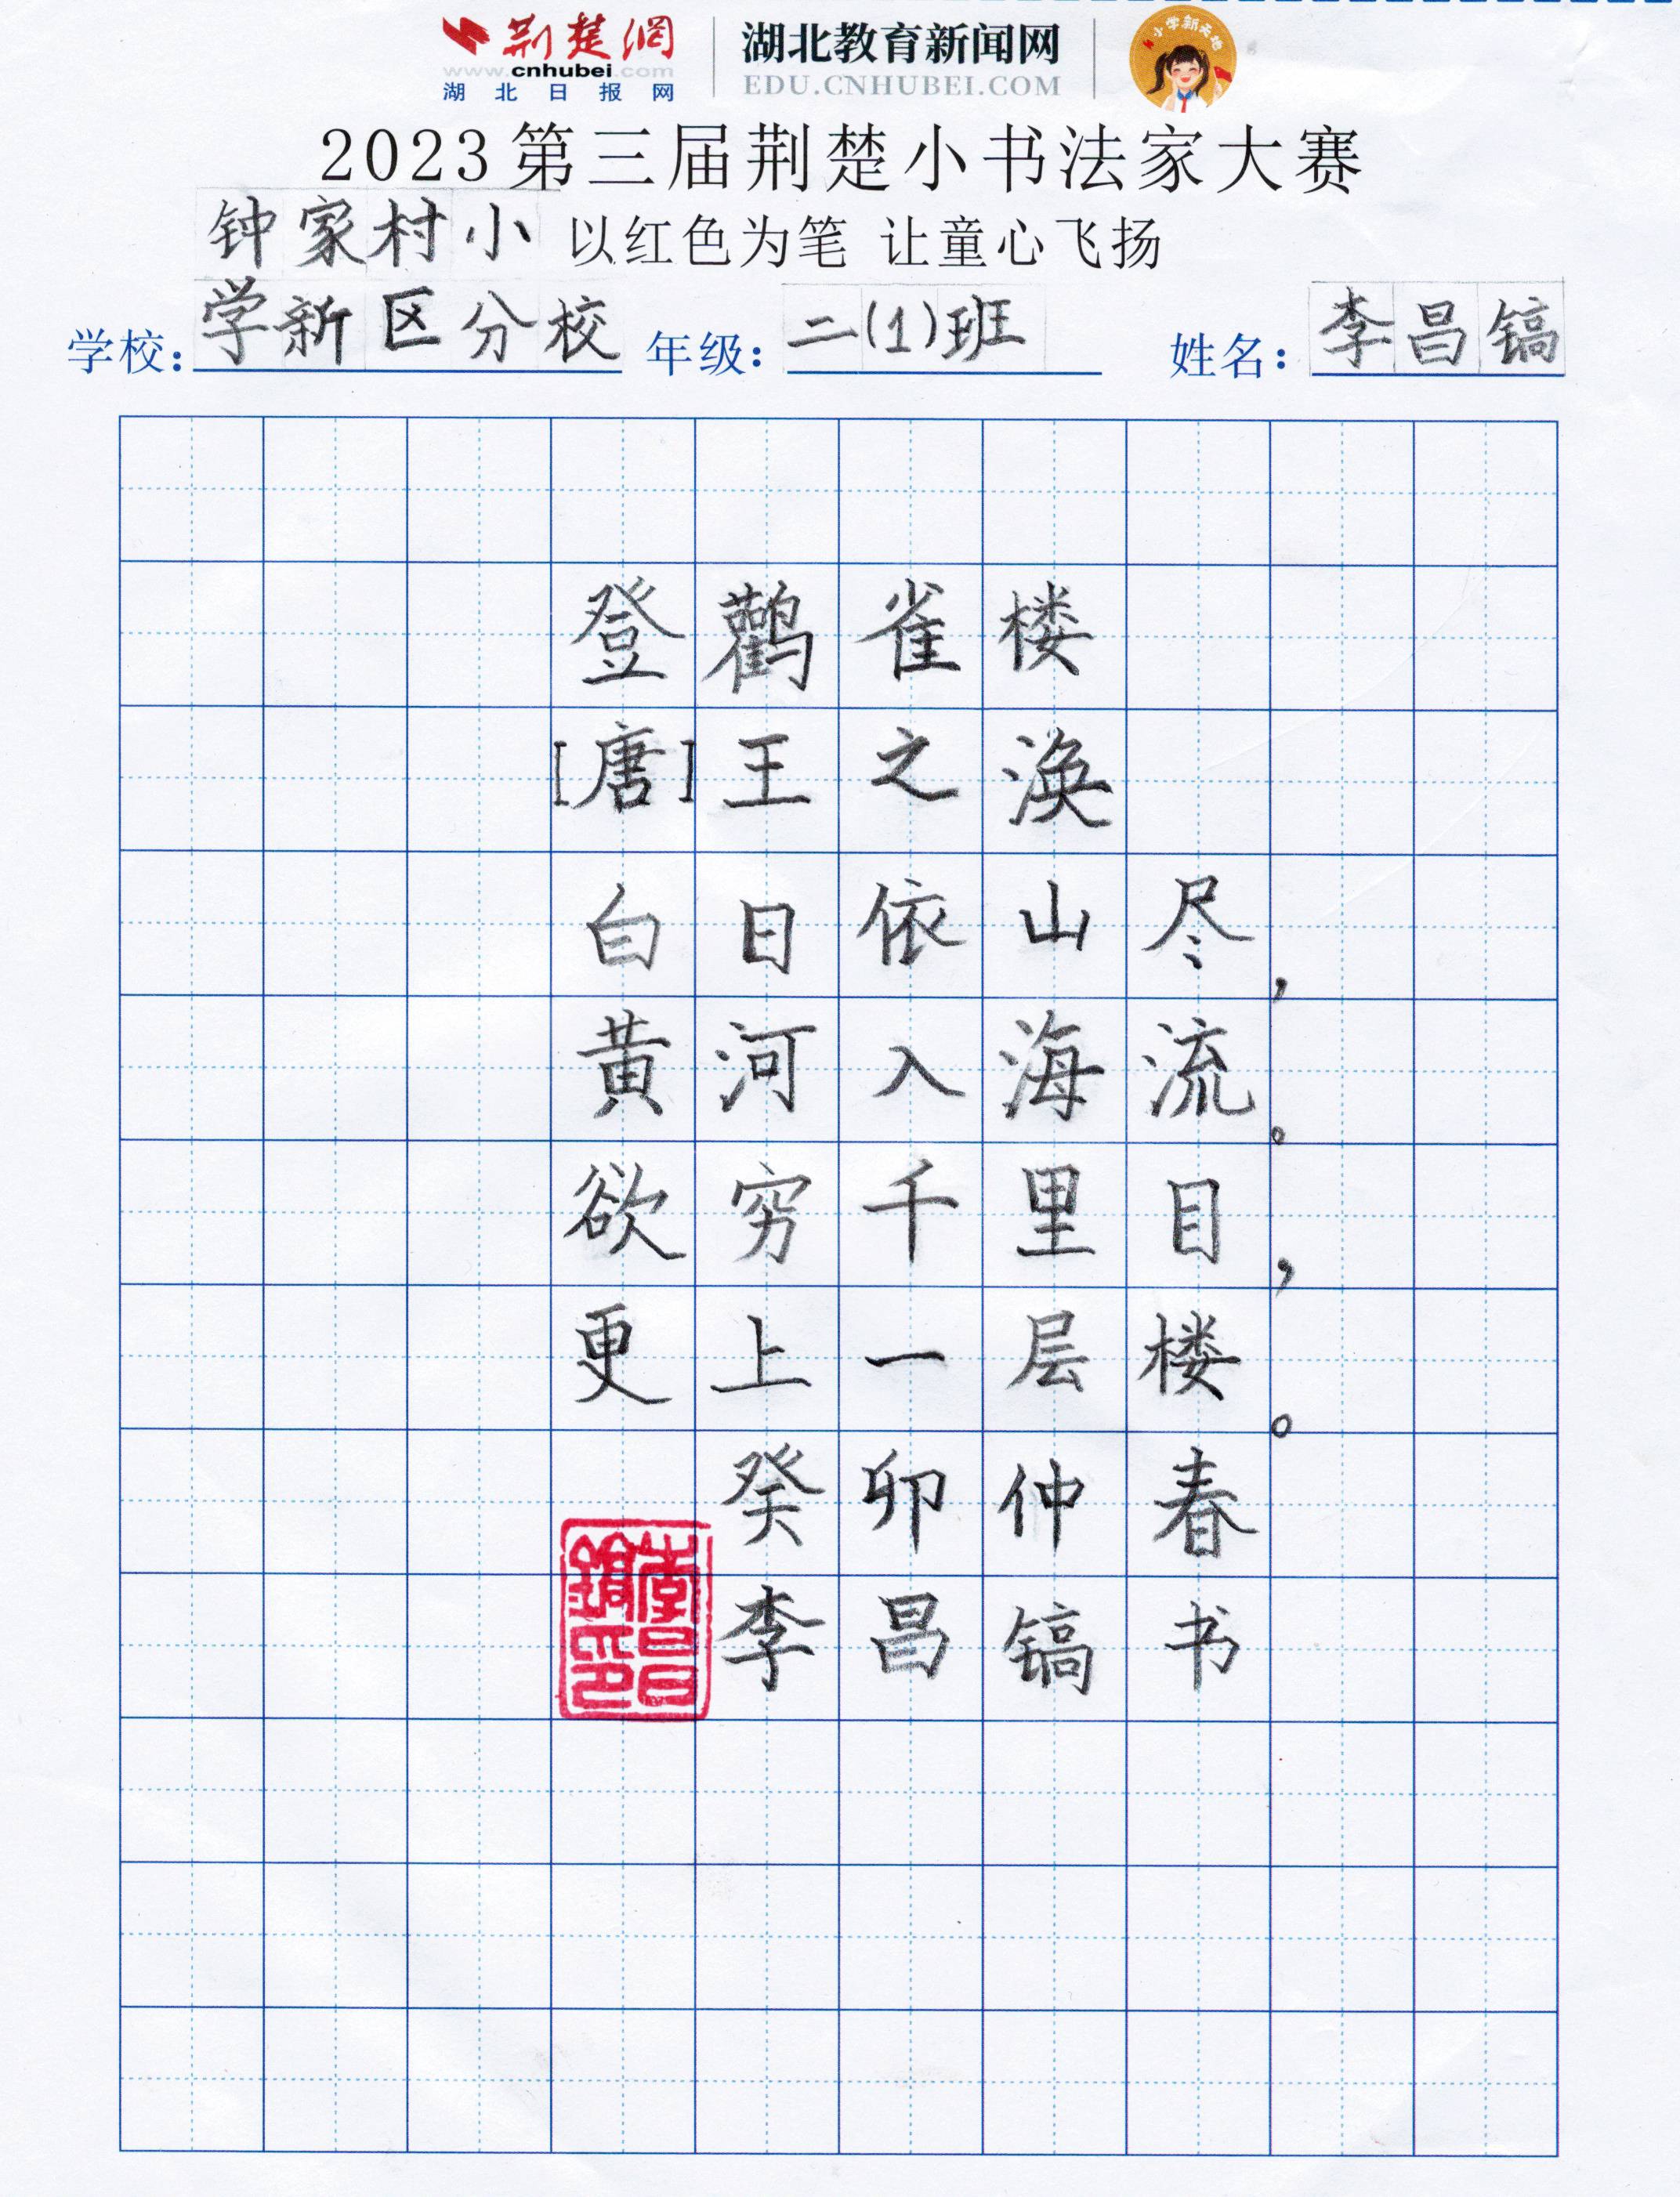 荆楚網
www.cnhubei.com
湖北日报网
湖北教育新闻网
EDU.CNHUBEI.COM
小学新天地
2023第三届荆楚小书法家大赛
钟家村小 以红色为笔 让童心飞扬
学校：学新区分校 年级：二(1)班 姓名：李昌镐
登鹳雀楼
[唐]王之涣
白日依山尽，
黄河入海流。
欲穷千里目，
更上一层楼。
癸卯仲春
李昌镐书
李昌镐印